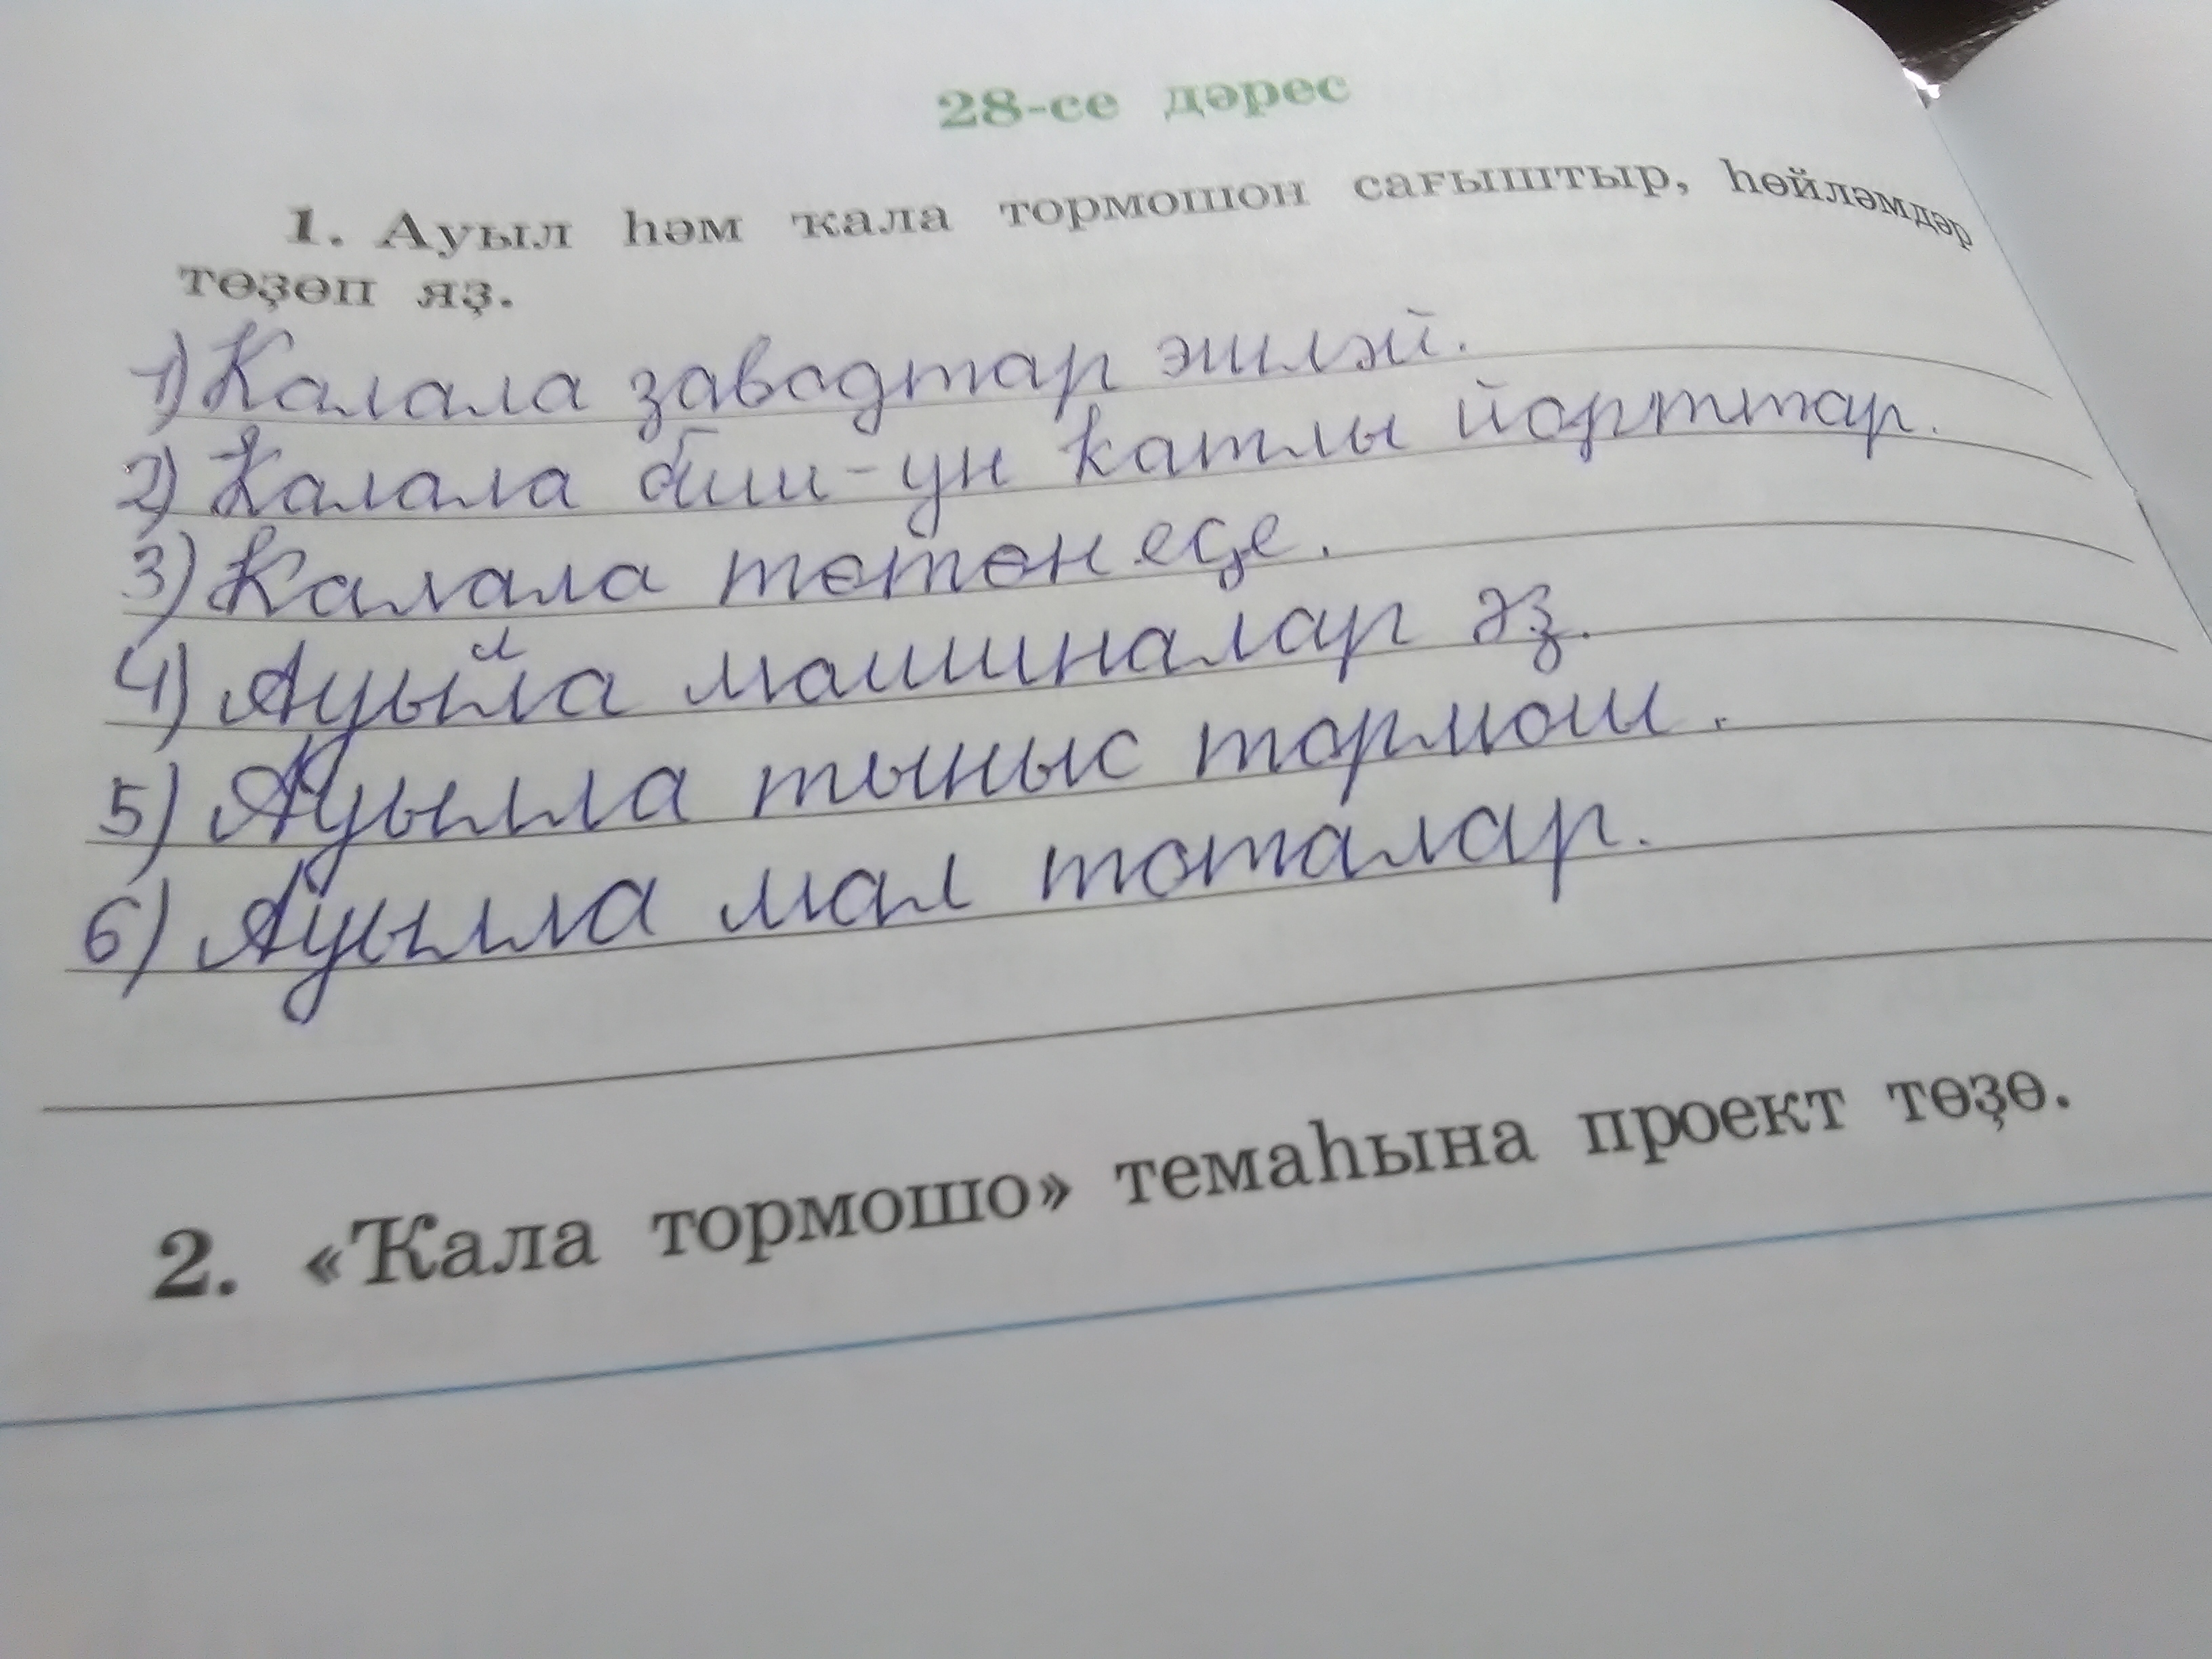 28-се дәрес
1. Ауыл һәм ҡала тормошон сағыштыр, һөйләмдәр
төҙөп яҙ.
1) Ҡалала заводтар эшләй.
2) Ҡалала биш-ун ҡатлы йорттар.
3) Ҡалала төтөн еҫе.
4) Ауылла машиналар әҙ.
5) Ауылла тыныс тормош.
6) Ауылла мал тоталар.
2. «Ҡала тормошо» темаһына проект төҙө.